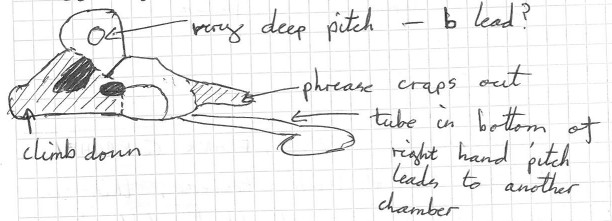 very deep pitch – b lead?
phrease craps out
tube in bottom of
right hand pitch
leads to another
chamber
climb down